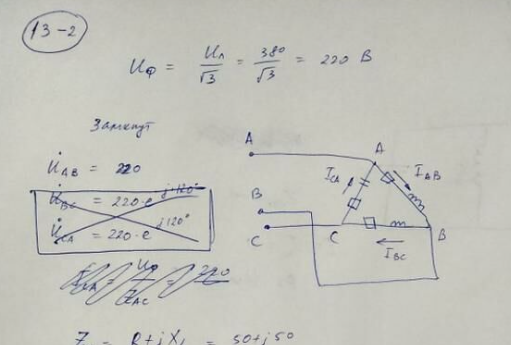 13-2
Uф = Uл/√3 = 380/√3 = 220 В
Замкнут
U̇AB = 220
U̇BC = 220·e^-j120°
U̇CA = 220·e^j120°
A
A
ICA
IAB
B
C
C
B
IBC
Z = R+jXL = 50+j50